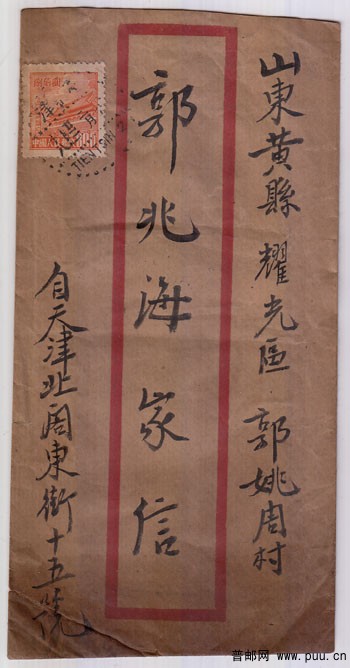 山東黃縣耀光區郭姚周村
郭兆海家信
自天津北閣東街十五號
TIENTSIN
普邮网 www.puu.cn